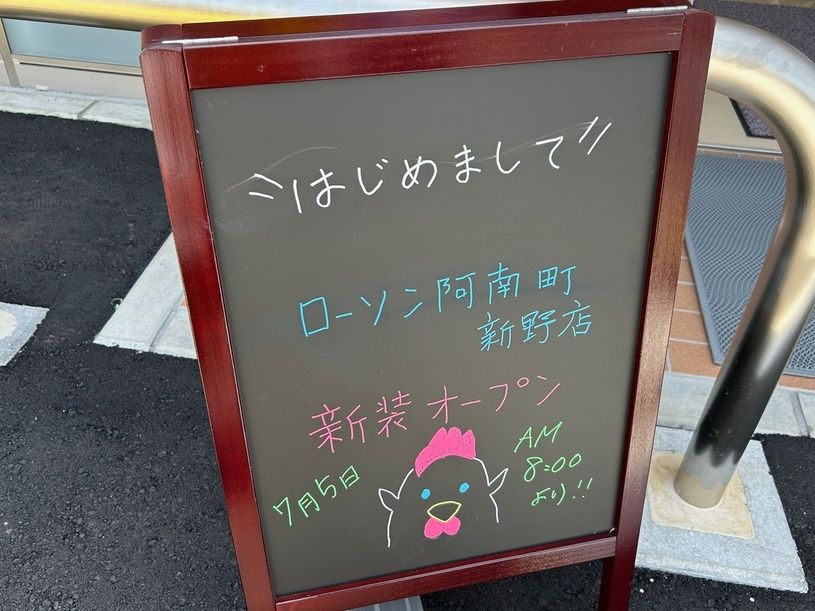 はじめまして
ローソン阿南町
新野店
新装オープン
7月5日
AM
8:00
より!!